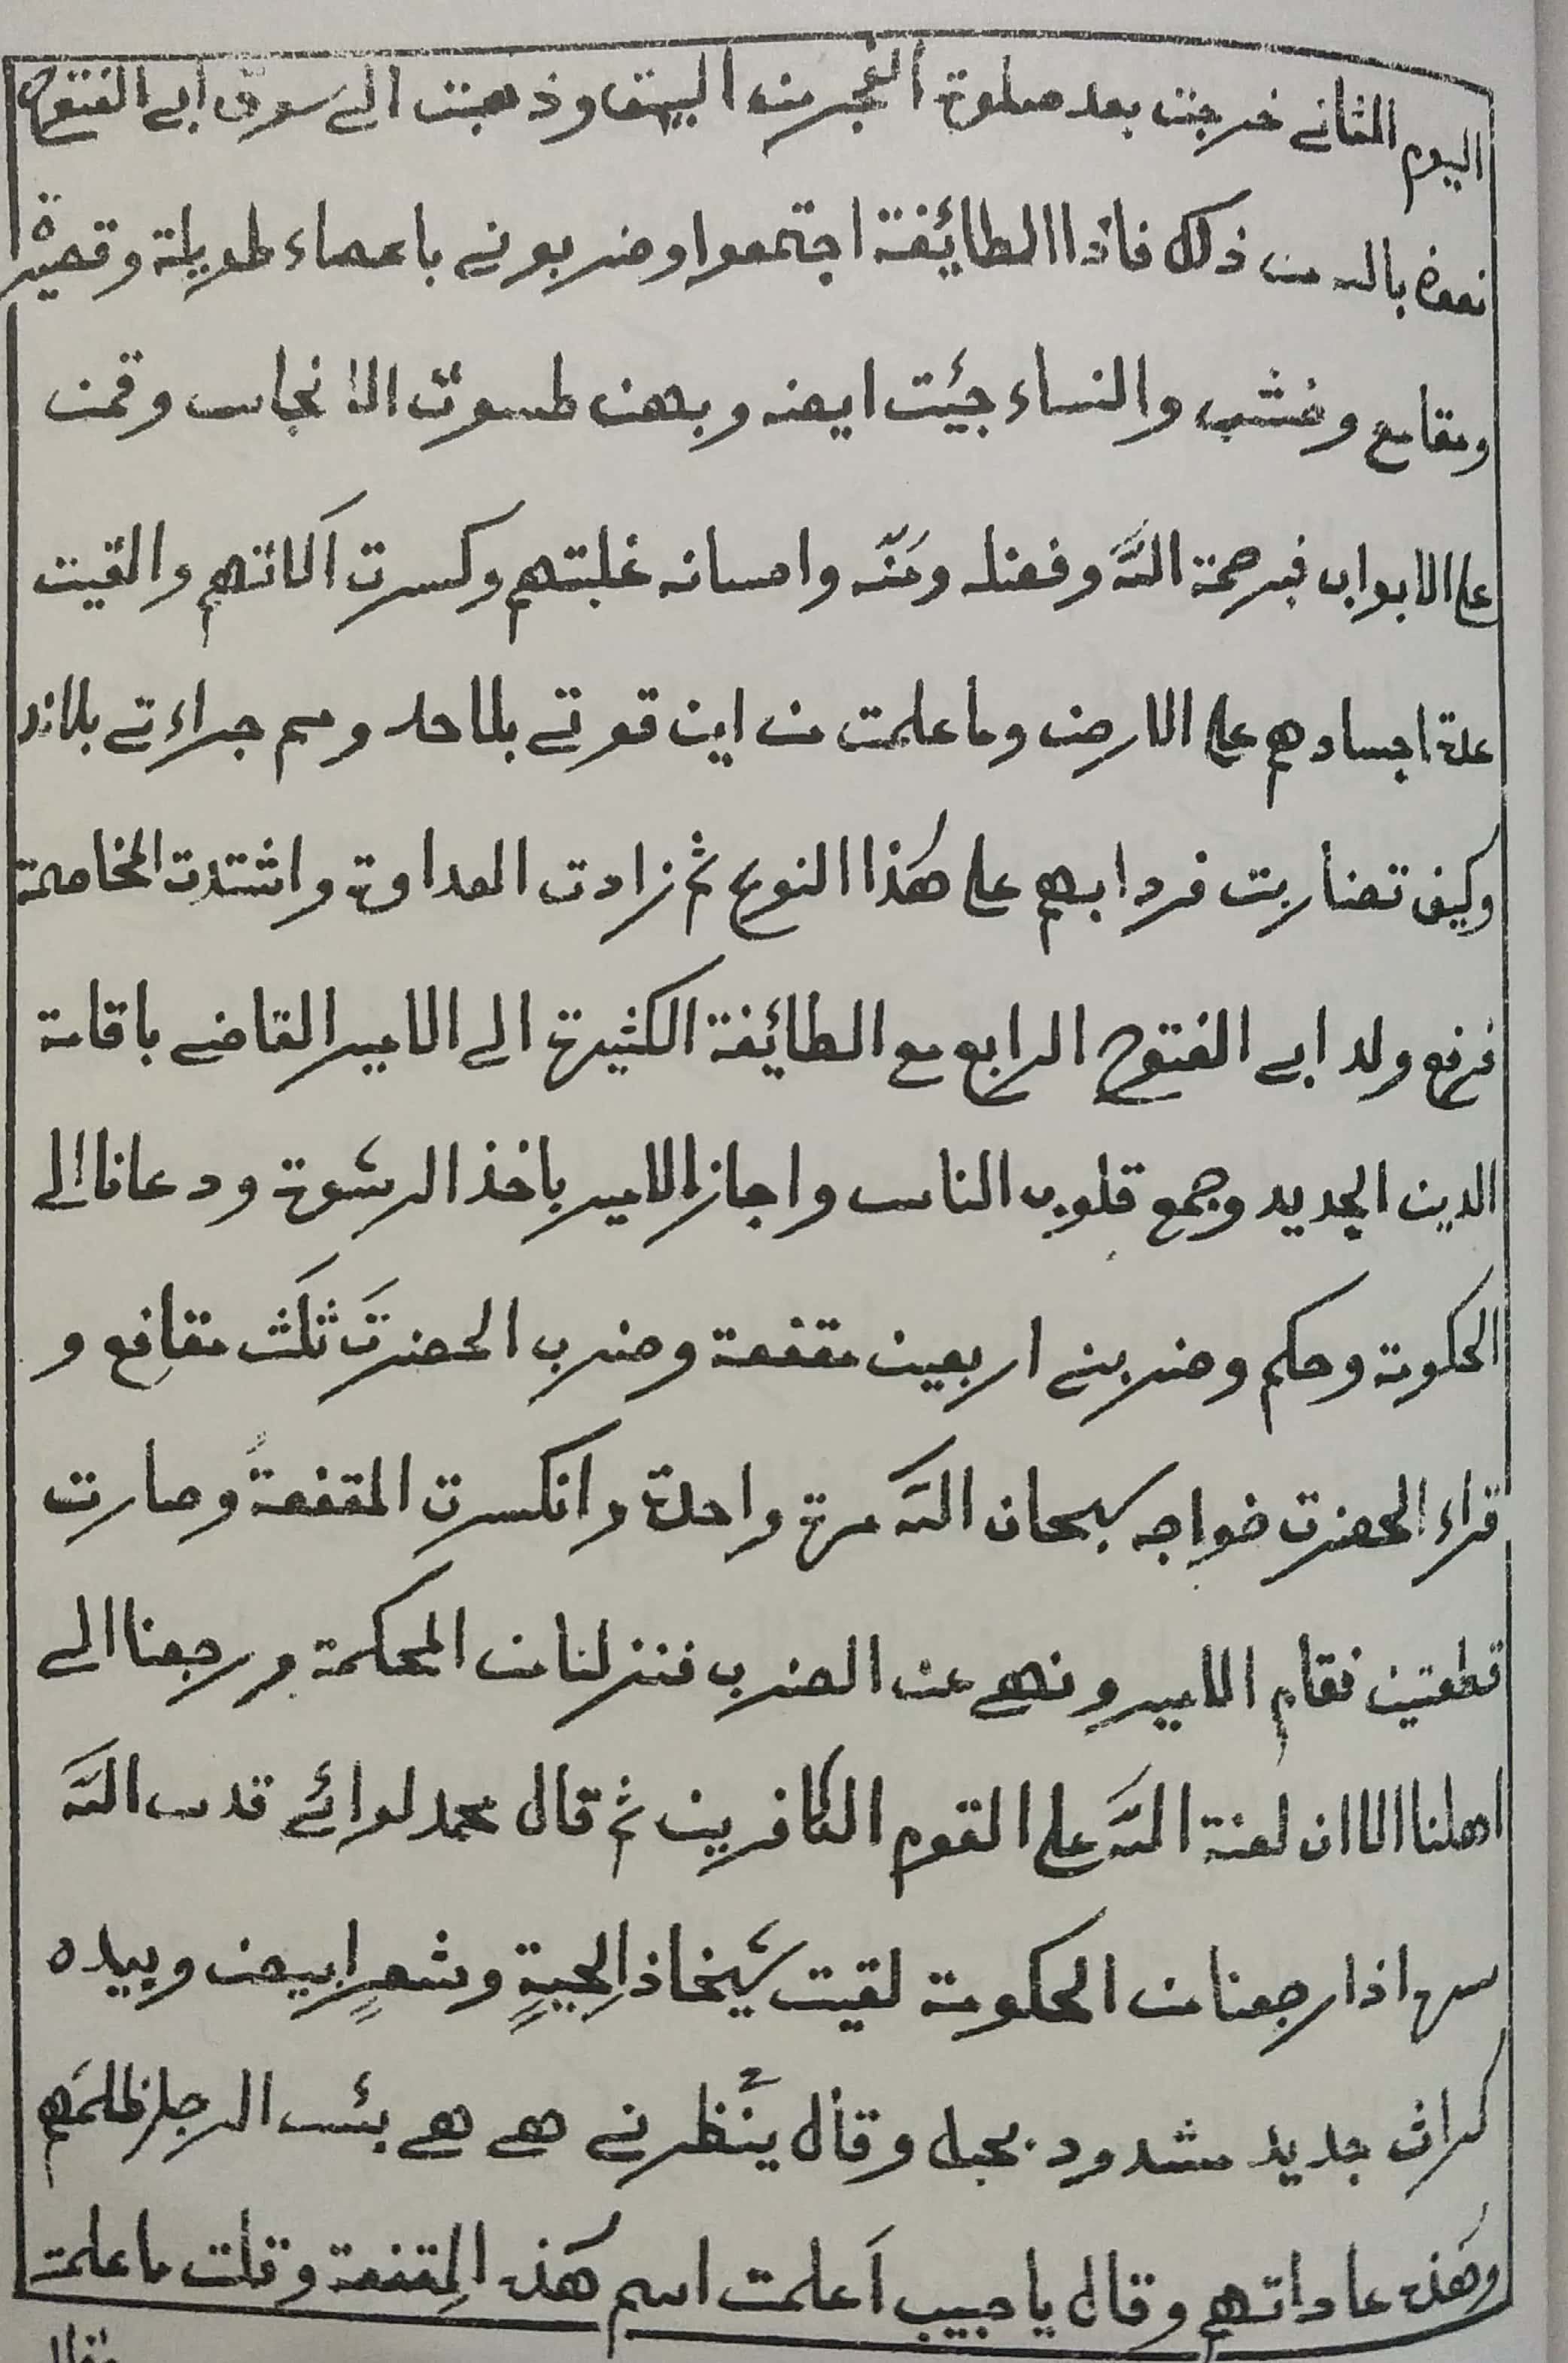 اليوم الثاني خرجت بعد صلوة الفجر من البيت وذهبت الى سوق ابي الفتوح
نعوذ بالله من ذلك فاذا الطائفة اجتمعوا وضربوني باعصاء طويلة وقصيرة
ومقامع وخشب والنساء جئت ايضه وبهن طسوت الانجاس وقمن
على الابواب فبرحمة الله وفضله ومَنّه واحسانه غلبتهم وكسرت آلاتهم والقيت
اجسادهم على الارض وما علمت من اين قوتي بلا حد ومم جراءتي بلا
وكيف تضاربت فردا بهم على هذا النوع ثم زادت العداوة واشتدت المخاصمة
فرفع ولد ابي الفتوح الرابع مع الطائفة الكثيرة الى الامير القاضي باقامة
الدين الجديد وجمع قلوب الناس واجاز الامير باخذ الرشوة ودعانا الى
الحكومة وحكم وضربني اربعين مقفعة وضرب الحضرتَ ثلث مقافع و
قراء الحضرت خواجه سبحان الله مرة واحدة وانكسرت المقفعةُ وصارت
قطعتين فقام الامير ونهى عن الضرب فنزلنا من المحكمة ورجعنا الى
اهلنا الا ان لعنة الله على القوم الكافرين ثم قال محمد لوائي قدس الله
سره اذا رجعنا من الحكومة لقيت شيخا ذا لحيةٍ وشعرٍ ابيض وبيده
كراث جديد مشدود بحبل وقال ينظرني هي هي بئس الرجل ظلمَهم
وهذه عاداتهم وقال يا حبيب اَعلمت اسم هذه المِقفعة وقلت ما علمت
فقال